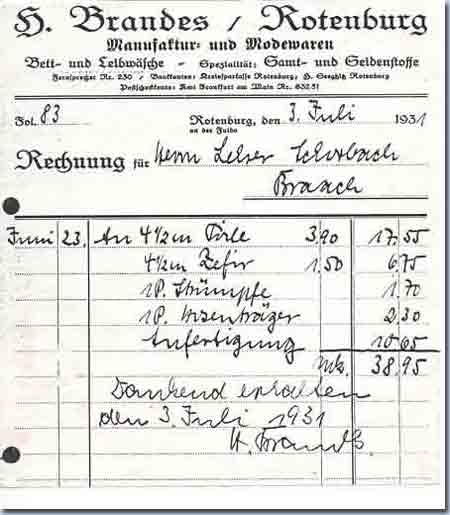 H. Brandes / Rotenburg
Manufaktur- und Modewaren
Bett- und Leibwäsche - Spezialität: Samt- und Seidenstoffe
Fernsprecher Nr. 230 / Bankkonten: Kreissparkasse Rotenburg; H. Rotenburg
Postscheckkonto: Amt Frankfurt am Main Nr. 63251
Fol. 83 Rotenburg, den 3. Juli 1931
an der Fulda
Rechnung für Herrn Leiser
Braach
Juni 23. An 4 1/2 m 3,90 17.55
4 1/2 m Zefir 1.50 6.75
1 P. Strümpfe 1.70
1 P. Hosenträger 2.30
Anfertigung 10.65
Mk. 38.95
Dankend erhalten
den 3. Juli 1931
H. Brandes.